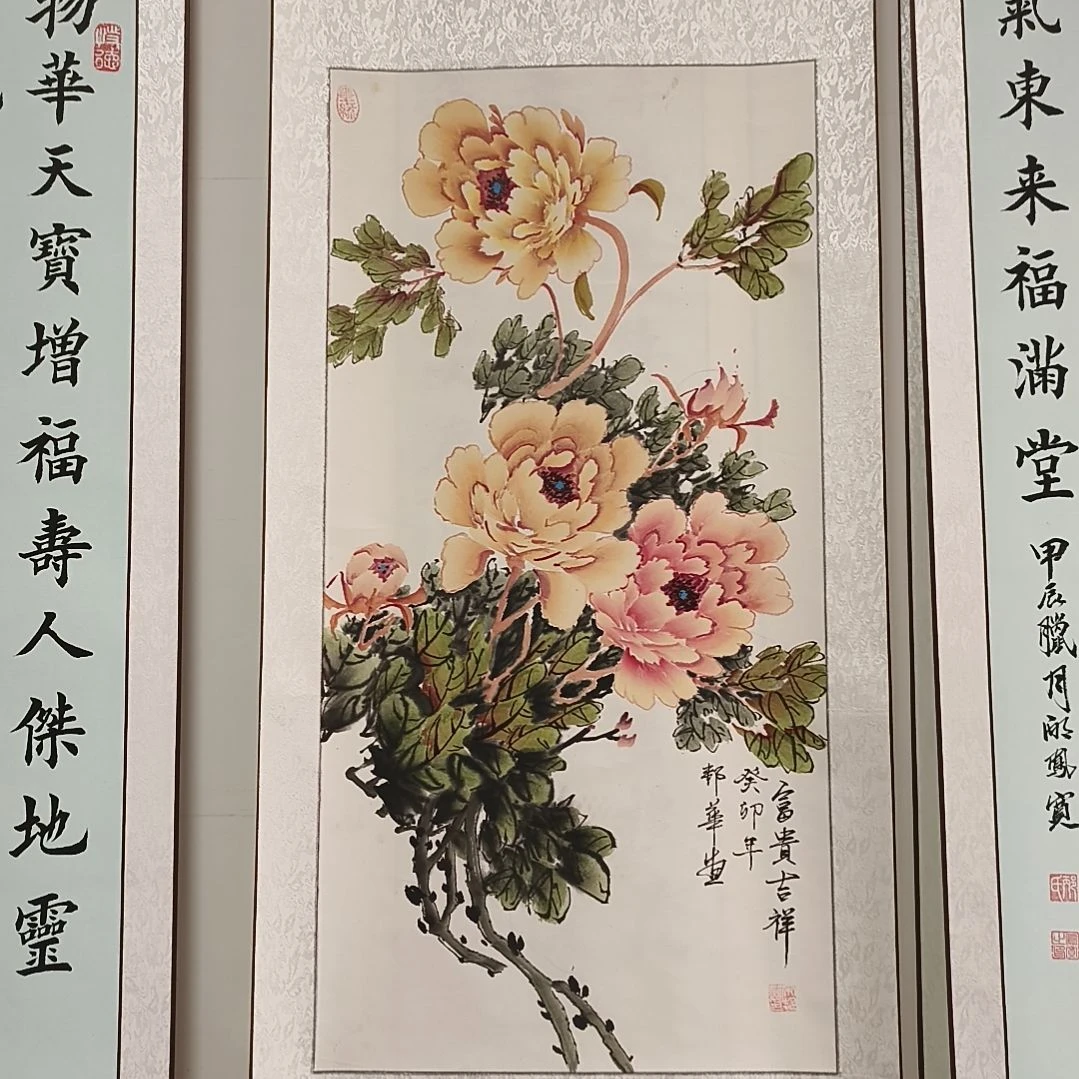 氣東来福滿堂
甲辰臘月
鳳寬
富貴吉祥
癸卯年
邦華画
物華天寶增福壽人傑地靈